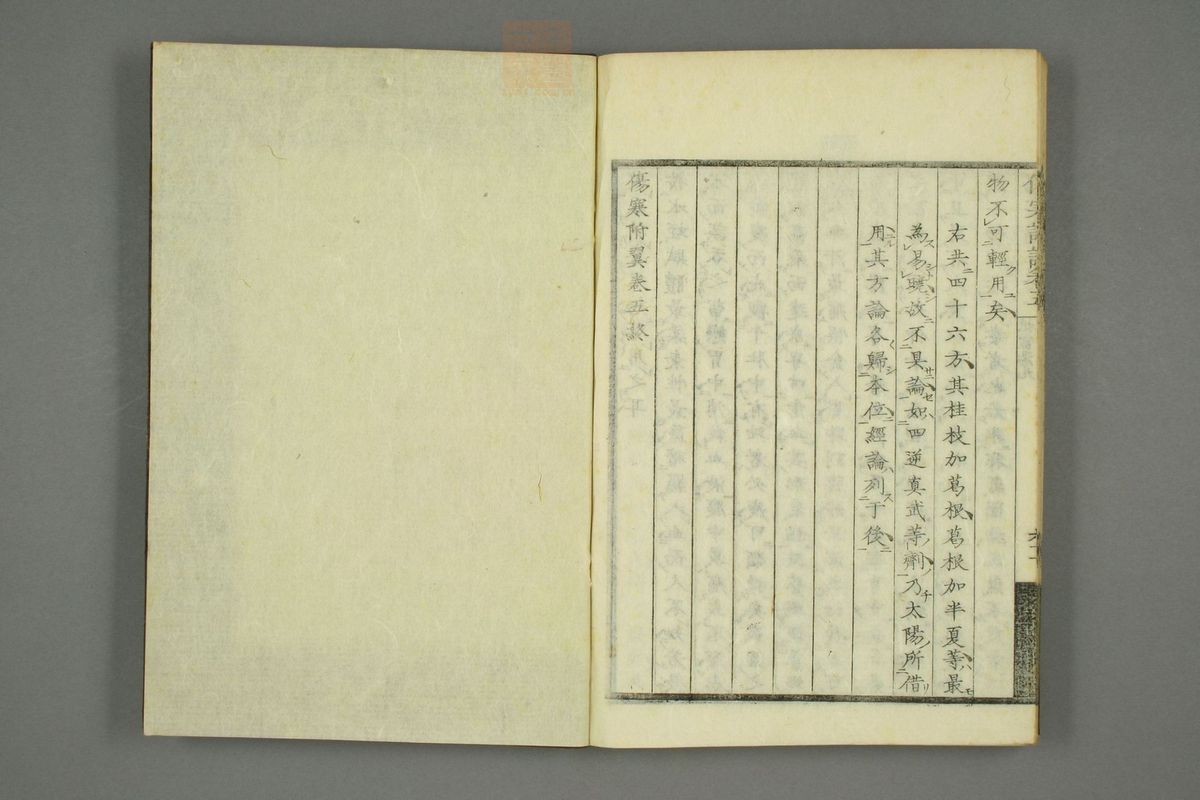 物不可輕用矣
右共四十六方其桂枝加葛根葛根加半夏等最
為易曉故不具論如四逆真武等劑乃太陽所借
用其方論各歸本位經論列于後
傷寒附翼卷五終